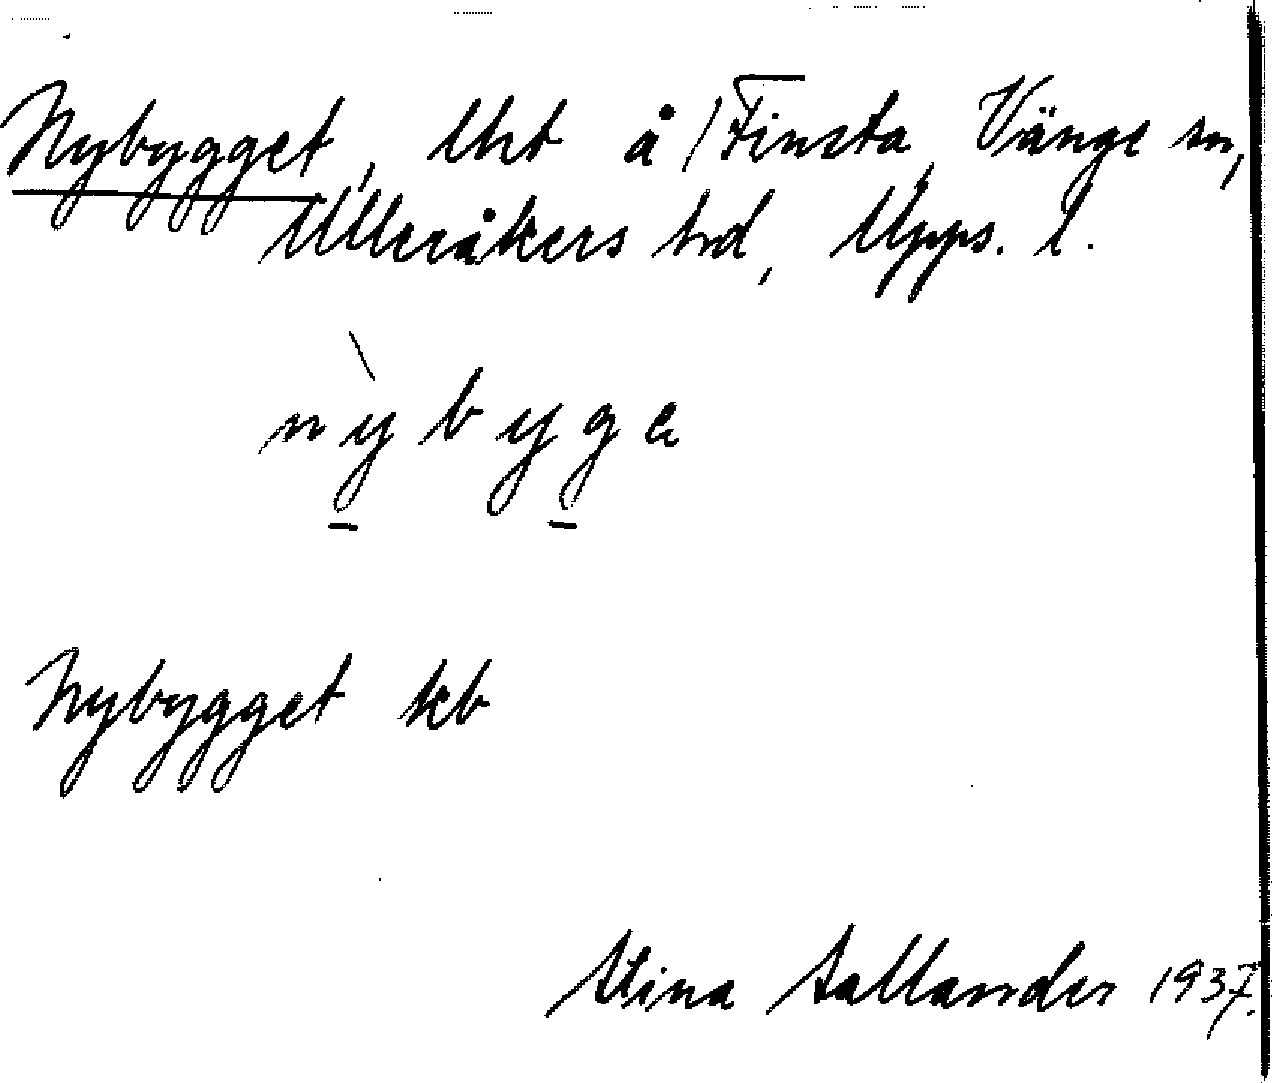 Nybygget, lht å Finsta, Vänge sn,
Ulleråkers hd, Upps. l.
nỳbyge
Nybygget kb
Stina Sallander 1937.